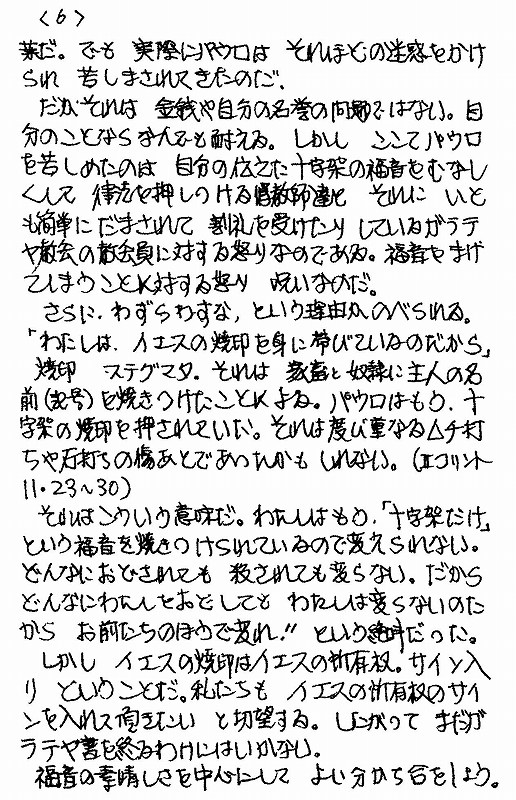 〈6〉
葉だ。でも 実際にパウロは それほどの迷惑をかけ
られ 苦しまされてきたのだ。
だがそれは 金銭や自分の名誉の問題ではない。自
分のことならなんでも耐える。しかし ここでパウロ
を苦しめたのは 自分の伝えた十字架の福音をむなし
くして 律法を押しつける偽教師達と それに いと
も簡単にだまされて 割礼を受けたりしているガラテ
ヤ教会の教会員に対する怒りなのである。福音をまげ
てしまうことに対する怒り 呪いなのだ。
さらに、わずらわすな、という理由がのべられる。
「わたしは、イエスの焼印を身に帯びているのだから」
焼印 ステグマタ。それは 家畜と奴隷に主人の名
前(記号)を焼きつけたことによる。パウロはもう、十
字架の焼印を押されていた。それは度び重なるムチ打
ちや石打ちの傷あとであったかも しれない。(IIコリント
11・23~30)
それはこういう意味だ。わたしはもう、「十字架だけ」
という福音を焼きつけられているので変えられない。
どんなにおどされても 殺されても変らない。だから
どんなにわたしをおどしても わたしは変らないのだ
から お前たちのほうで変れ!! という絶叫だった。
しかし イエスの焼印はイエスの所有権。サイン入
り ということだ。私たちも イエスの所有権のサイ
ンを入れて頂きたい と切望する。したがって まだガ
ラテヤ書を終るわけにはいかない。
福音の素晴しさを中心にして よい分かち合をしよう。